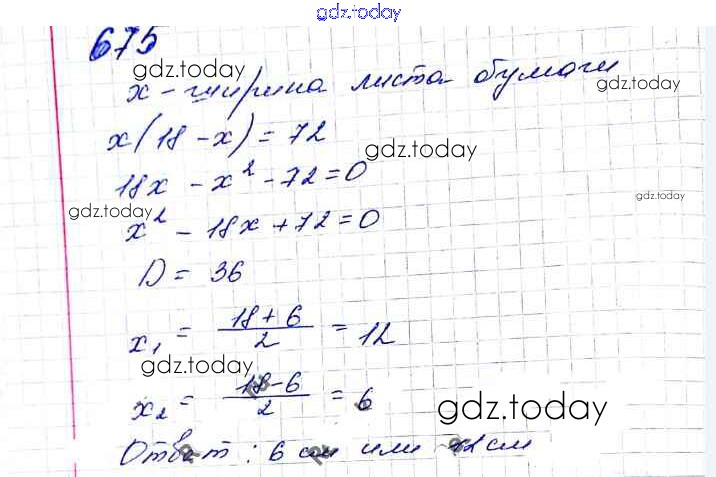 gdz.today
675
gdz.today
x - ширина листа бумаги
gdz.today
x(18 - x) = 72
gdz.today
18x - x² - 72 = 0
gdz.today
x² - 18x + 72 = 0
D = 36
x₁ = (18 + 6)/2 = 12
gdz.today
x₂ = (18 - 6)/2 = 6
gdz.today
Ответ: 6 см или 12 см